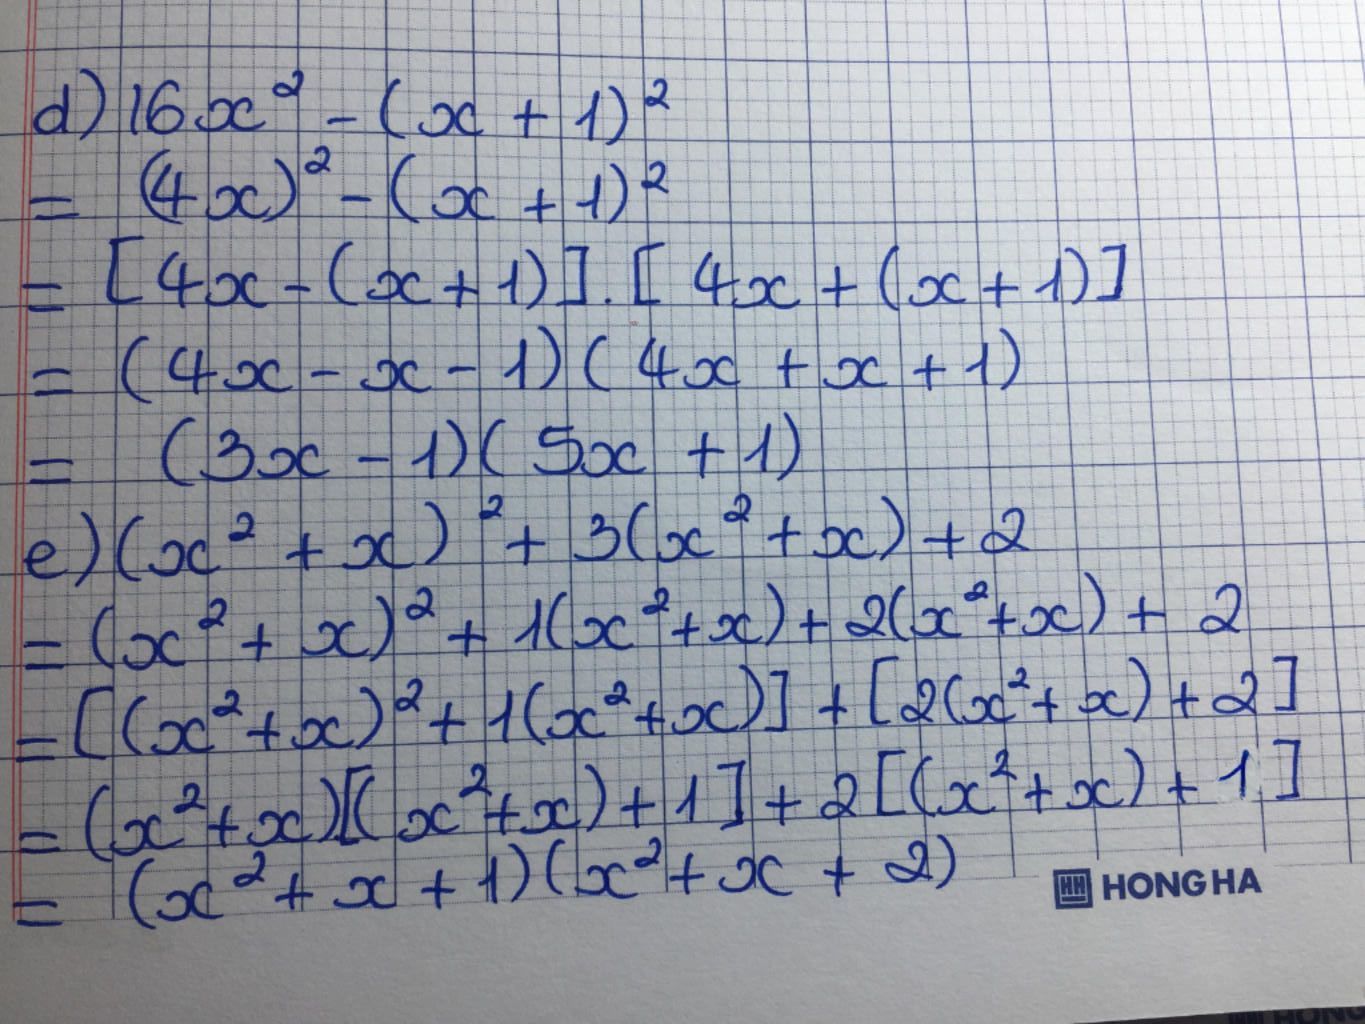 d) 16x² - (x + 1)²
= (4x)² - (x + 1)²
= [4x - (x + 1)] . [4x + (x + 1)]
= (4x - x - 1)(4x + x + 1)
= (3x - 1)(5x + 1)
e) (x² + x)² + 3(x² + x) + 2
= (x² + x)² + 1(x² + x) + 2(x² + x) + 2
= [(x² + x)² + 1(x² + x)] + [2(x² + x) + 2]
= (x² + x)[(x² + x) + 1] + 2[(x² + x) + 1]
= (x² + x + 1)(x² + x + 2)
HH HONG HA